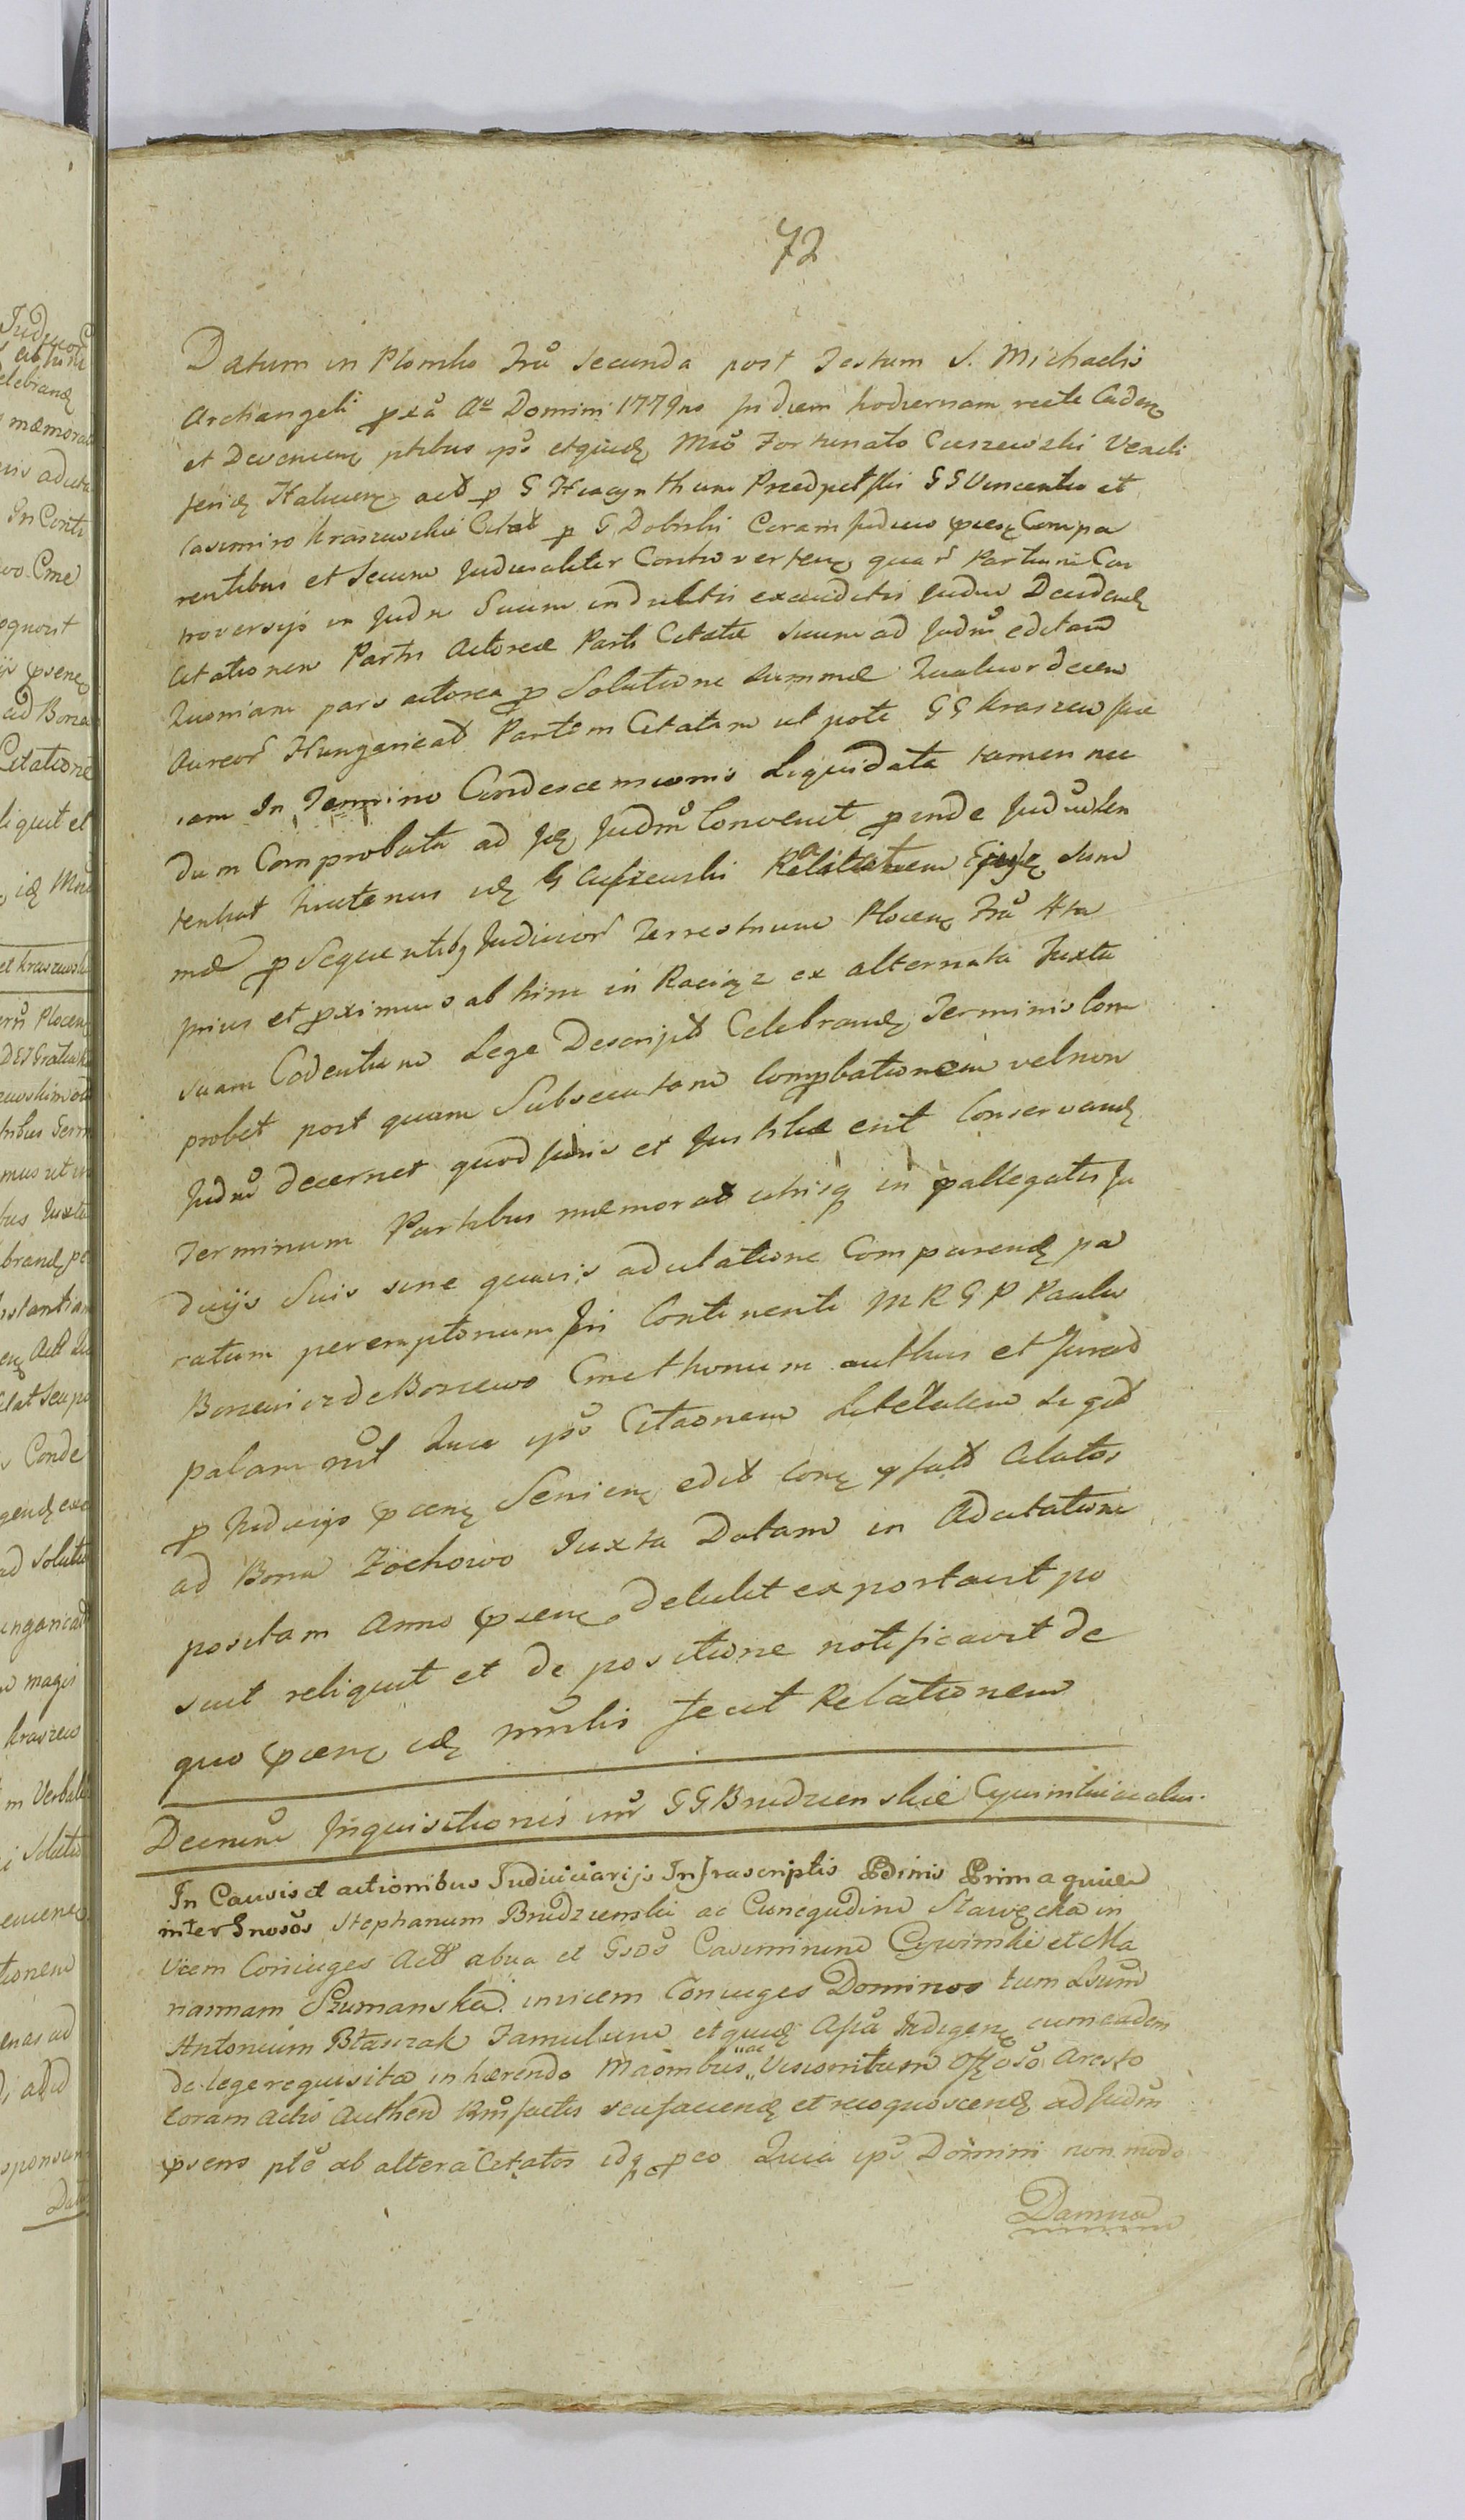 72
Datum in Plonsko Fră secunda post Festum S. Michaelis
Archangeli pxă Aº Domini 1779no In diem hodiernam recte Caden
et Devenien ptibus ips etquid Mco Fortunato Cieszewski Vexili
ferid Halicien act p G Hiacynthum Przedpelski GG Vincentio et
Casimiro Kraszewskie Citat p G Dobrski Coram Judicio praes Compa
rentibus et Secum Judicialiter Controverten quar Partium Con
troversijs in Judn Suum indultis exauditis Judm Decidend
Citationem Partis Actoreae Parti Citatae Suum ad Judm editam
Quoniam pars actorea p Solutione Summae Quatuordecem
Aureor Hungaricat Partem Citatam ut pote GG Kraszewskie
iam In Termino Condescensionis Liquidata tamen nec
dum Comprobata ad Judm Convenit pinde Jud
tenus G Cieszewski Realitatem Ejusd Sum
mae p Sequentibus Judicior Terrestrium Plocen Fră 4ta
prius et pximius ab hinc in Raciąz ex alternata Juxta
suam Cadentium Lege Descript Celebrand Terminis Com
probet post quam Subsecutam Compbationem vel non
Judm decernet quod Juris et Justitiae erit Conservand
Terminum Partibus memorat utrisq in pallegatis Ju
dicijs Suis sine quavis adcitatione Comparend pa
ratum peremptorium In Continenti M R G P Paulus
Boncewicz de Boncewo Cmethonum authen et Jurad
palam rcit Quia ips Citaonem Litetalem Legit
p Judicijs praen Servien edit Con psat Citatos
ad Bona Zochowo Juxta Datam in Adcitatione
positam Anno praen detulit exportavit po
suit reliquit et de positione notificavit de
quo praen id mnrlis fecit Relationem
Decretum Inquisitionis int GG Brudzienskie Cywinskie ac alios.
In Causis et actionibus Judiciciarijs Infrascriptis Pdinis Prima quiem
inter Gnosos Stephanum Brudzienski ac Cunegudim Stawęcka in
vicem Coniuges Act ab una et Gsos Casimirum Cywinski et Ma
riannam Szumanska invicem Coniuges Dominos tum Lsum
Antonium Błaszczak Famulum et quid Indigen cum eadem
de lege requisita inhaerendo Maombus ac Visionibum Offoso Aresto
Coram Actis Authend factis seu faciend et recognoscend ad Judm
psens pte ab altera Citatos idq p eo Quia ips Domini non modo
Damna